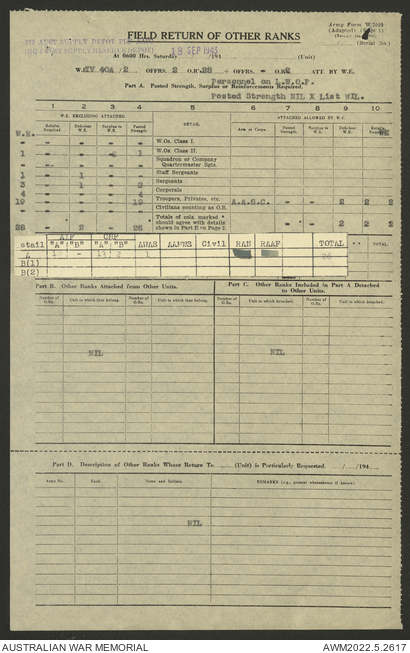 Army Form W.3009
(Adapted) (Page 1)
FIELD RETURN OF OTHER RANKS
(Serial No.)
18 SEP 1945
At 0600 Hrs. Saturday /194 (Unit)
W.E. XV 40A/2 OFFRS. 2 O.R. 28 + OFFRS. - O.R. 2 ATT. BY W.E.
Personnel on L.W.O.P.
Part A. Posted Strength, Surplus or Reinforcements Required.
Posted Strength NIL X List NIL.
1 2 3 4 5 6 7 8 9 10
W.E. EXCLUDING ATTACHED. ATTACHED ALLOWED BY W.E.
W.E.
Reinfts. Required. Deb/ose W.E. Surplus to W.E. Posted Strength. DETAIL Arm or Corps. Posted Strength. Surplus to W.E. Deb/ose W.E. Reinfts. Required.
W.Os. Class I.
1 1 W.Os. Class II.
Squadron or Company
Quartermaster Sgts.
1 1 Staff Sergeants
3 1 2 Sergeants
4 4 Corporals
19 19 Troopers, Privates, etc. A.A.S.C. - - 2 2 2
Civilians counting as O.R.
Totals of cols. marked
should agree with details
28 2 - 26 shown in Part E on Page 2. - 2 2 2
AIF CMF
etail "A" "B" "A" "B" AWAS AAMWS Civil RAN RAAF TOTAL
A 1 26
B(1)
B(2)
TOTAL.
Part B. Other Ranks Attached from Other Units.
Part C. Other Ranks Included in Part A Detached
to Other Units.
Number of O.Rs. Unit to which they belong. Number of O.Rs. Unit to which they belong. Number of O.Rs. Unit to which detached. Number of O.Rs. Unit to which detached.
NIL NIL
Part D. Description of Other Ranks Whose Return To (Unit) is Particularly Requested. / /194
Army No. Rank. Name and Initials. REMARKS (e.g., present whereabouts if known).
NIL
AUSTRALIAN WAR MEMORIAL AWM2022.5.2617